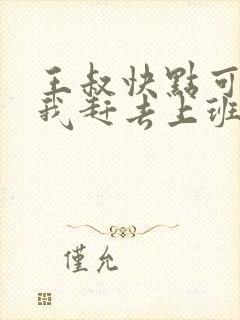 王叔快點可
我赶去上班
僅允